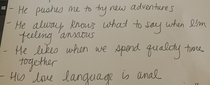 - He pushes me to try new adventures
- He always knows what to say when I'm
feeling anxious
- He likes when we spend quality time
together
- His love language is anal